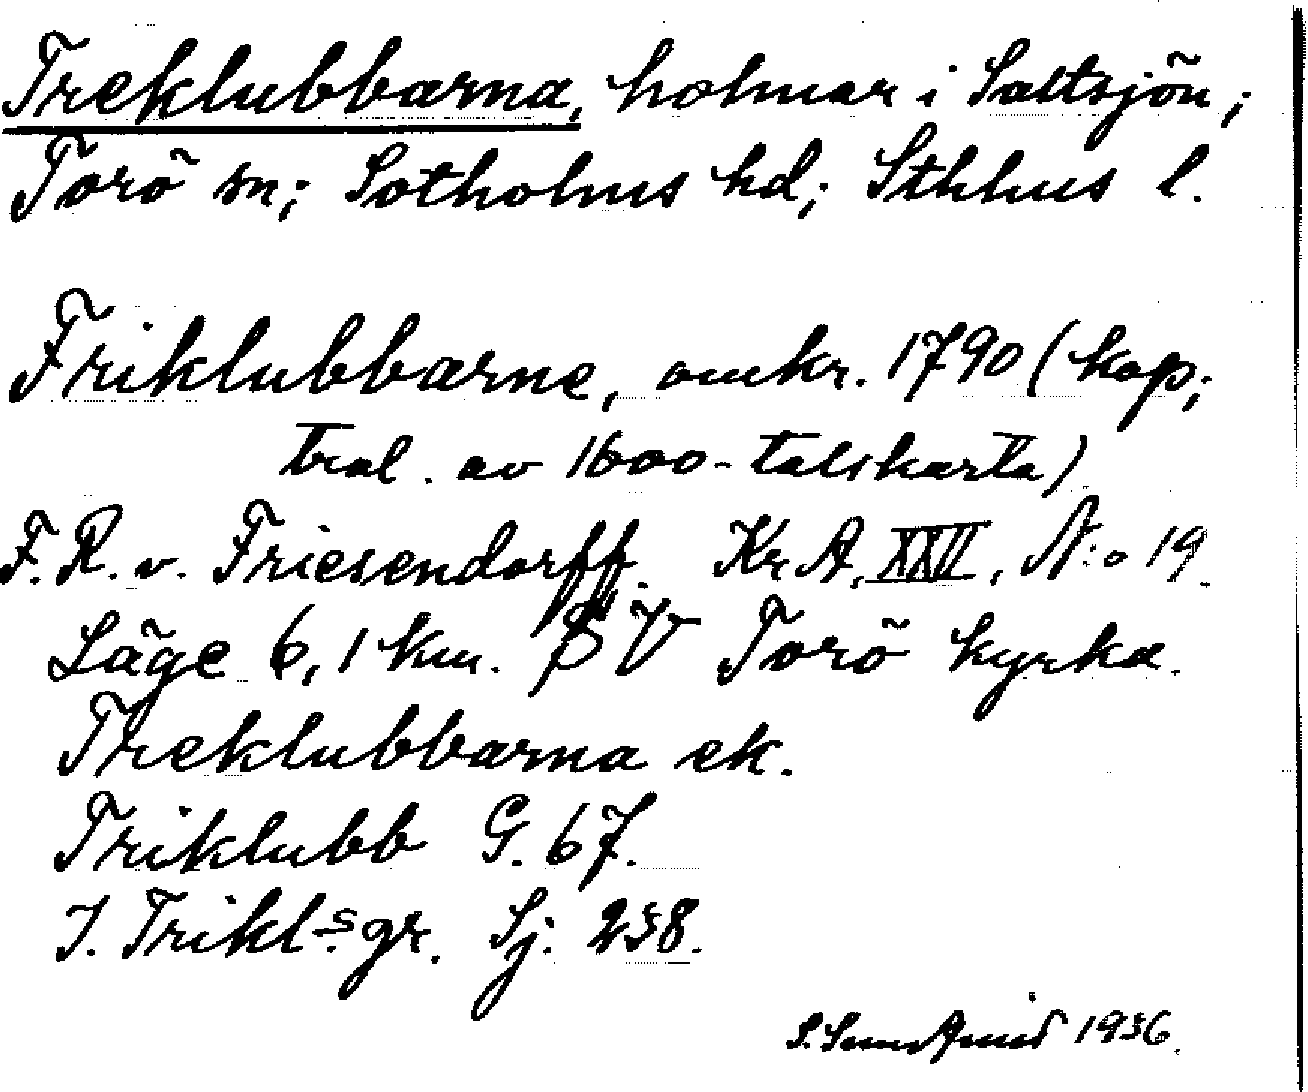 Treklubbarna, holmar i Saltsjön;
Torö sn; Sotholms hd; Sthlms l.
Triklubbarne, omkr. 1790 (kop;
tral. av 1600-talskarta)
F. R. v. Friesendorff. Kr. A. XXVII, N:o 19.
Läge 6,1 km. SV Torö kyrka.
Treklubbarna ek.
Triklubb G. 67.
I. Trikl-s gr. Sj. 238.
1936.